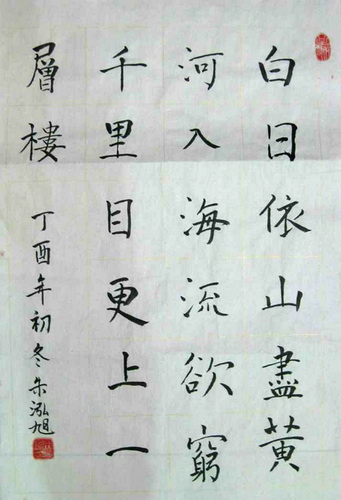 白日依山盡黄
河入海流欲窮
千里目更上一
層樓
丁酉年初冬朱泓旭